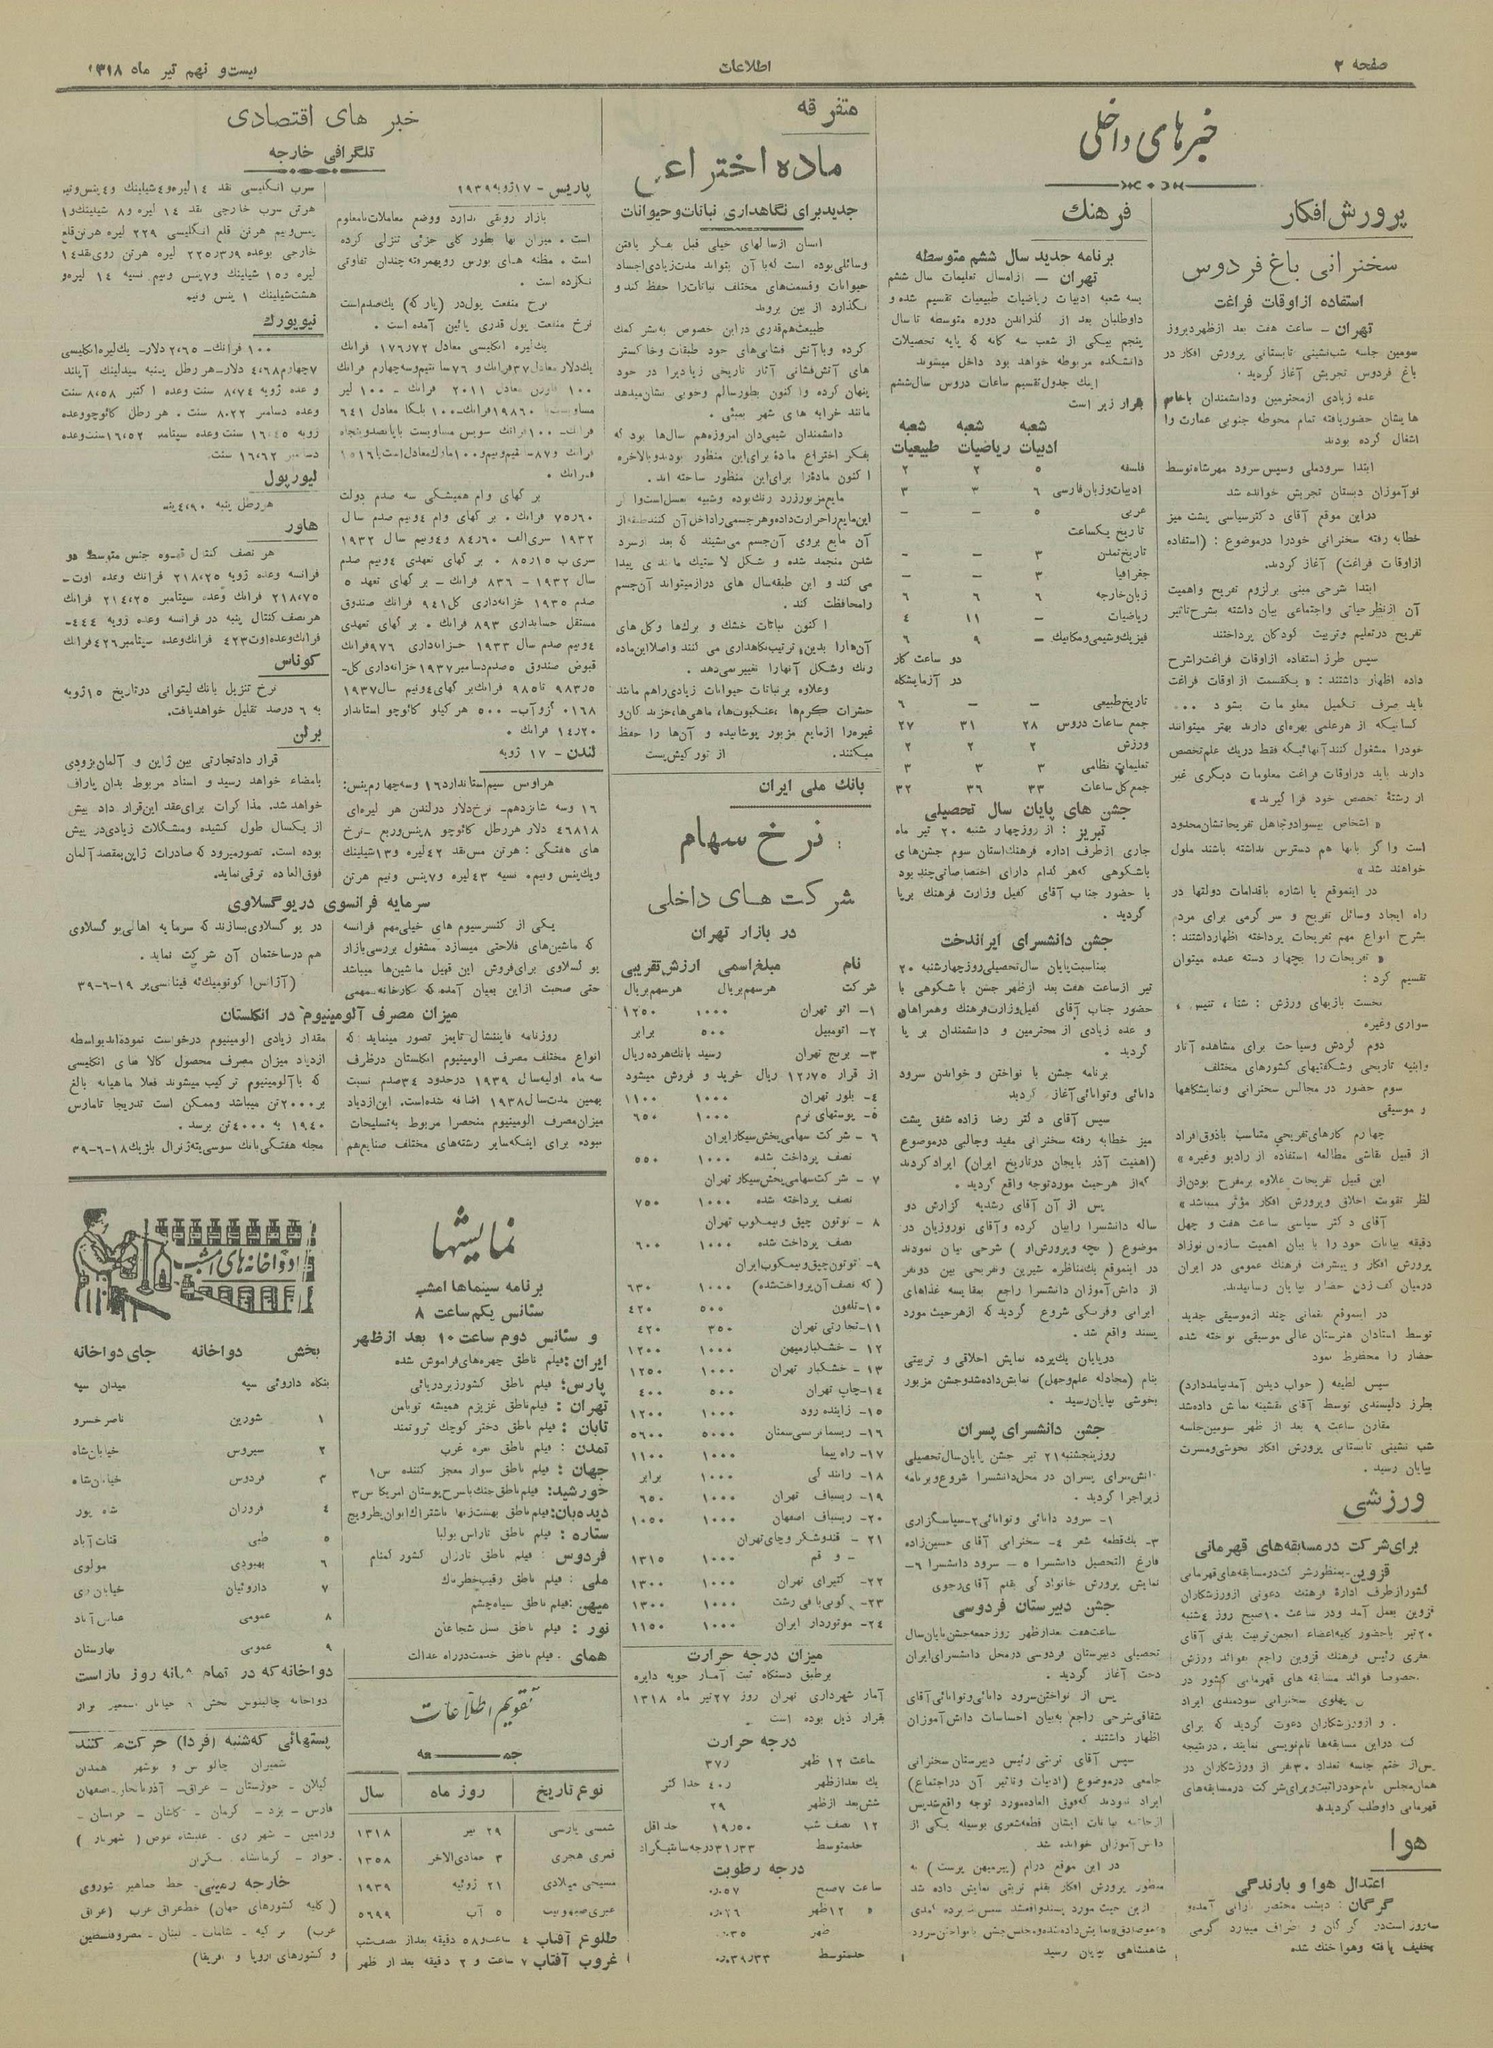 صفحه ۲
اطلاعات
بیست و نهم تیر ماه ۱۳۱۸
خبرهای داخلی
پرورش افکار
سخنرانی باغ فردوس
استفاده از اوقات فراغت
تهران - ساعت هفت بعد از ظهر دیروز
سومین جلسه شب‌نشینی تابستانی پرورش افکار در
باغ فردوس تجریش آغاز گردید.
عده زیادی از محترمین و دانشمندان با خانم
هایشان حضور یافته تمام محوطه جنوبی عمارت را
اشغال کرده بودند
ابتدا سرود ملی و سپس سرود مهر شاه توسط
نوآموزان دبستان تجریش خوانده شد
در این موقع آقای دکتر سیاسی پشت میز
خطابه رفته سخنرانی خود را در موضوع : (استفاده
از اوقات فراغت) آغاز کردند.
ابتدا شرحی مبنی بر لزوم تفریح و اهمیت
آن از نظر حیاتی و اجتماعی بیان داشته بشرح تاثیر
تفریح در تعلیم و تربیت کودکان پرداختند
سپس طرز استفاده از اوقات فراغت را شرح
داده اظهار داشتند : « یکقسمت از اوقات فراغت
باید صرف تکمیل معلومات بشود ...
کسانیکه از هر علمی بهره‌ای دارند بهتر میتوانند
خود را مشغول کنند آنهائیکه فقط در یک علم تخصص
دارند باید در اوقات فراغت معلومات دیگری غیر
از رشتهٔ تخصص خود فرا گیرند »
« اشخاص بیسواد و جاهل تفریحاتشان محدود
است و اگر بآنها هم دسترس نداشته باشند ملول
خواهند شد »
در اینموقع با اشاره باقدامات دولتها در
راه ایجاد وسائل تفریح و سرگرمی برای مردم
بشرح انواع مهم تفریحات پرداخته اظهار داشتند :
« تفریحات را بچهار دسته عمده میتوان
تقسیم کرد :
نخست بازیهای ورزش : شنا ، تنیس ،
سواری وغیره
دوم گردش و سیاحت برای مشاهده آثار
وابنیه تاریخی و شگفتیهای کشورهای مختلف
سوم حضور در مجالس سخنرانی و نمایشگاهها
و موسیقی
چهارم کارهای تفریحی متناسب باذوق افراد
از قبیل نقاشی مطالعه استفاده از رادیو وغیره »
این قبیل تفریحات علاوه بر مفرح بودن از
نظر تقویت اخلاق و پرورش افکار مؤثر میباشد »
آقای دکتر سیاسی ساعت هفت و چهل
دقیقه بیانات خود را با بیان اهمیت سازمان نوزاد
پرورش افکار و پیشرفت فرهنگ عمومی در ایران
درمیان کف زدن حضار بپایان رسانیدند.
در اینموقع نغماتی چند از موسیقی جدید
توسط استادان هنرستان عالی موسیقی نواخته شده
حضار را محظوظ نمود
سپس لطیفه ( خواب دیدن آمد نیامد دارد)
بطرز دلپسندی توسط آقای نقشینه نمایش داده شد
مقارن ساعت ۹ بعد از ظهر سومین جلسه
شب نشینی تابستانی پرورش افکار بخوشی و مسرت
بپایان رسید .
ورزشی
برای شرکت در مسابقه‌های قهرمانی
قزوین - بمنظور شرکت در مسابقه‌های قهرمانی
کشور از طرف ادارهٔ فرهنگ دعوتی از ورزشکاران
قزوین بعمل آمد و در ساعت ۱۰ صبح روز ۴ شنبه
۲۰ تیر باحضور کلیه اعضاء انجمن تربیت بدنی آقای
رئیس فرهنگ قزوین راجع بفوائد ورزش
خصوصا فوائد مسابقه های قهرمانی کشور در
پهلوی سخنرانی سودمندی ایراد
و از ورزشکاران دعوت گردید که برای
در این مسابقه‌ها نام‌نویسی نمایند . درنتیجه
پس از ختم جلسه تعداد ۳۰ نفر از ورزشکاران در
همان مجلس نام خود را ثبت و برای شرکت در مسابقه‌های
قهرمانی داوطلب گردیدند
هوا
اعتدال هوا و بارندگی
گرگان : دیشب مختصر بارانی آمده و
سه روز است در گرگان و اطراف میبارد گرمی
تخفیف یافته وهوا خنک شده
فرهنگ
برنامه جدید سال ششم متوسطه
تهران - از امسال تعلیمات سال ششم
بسه شعبه ادبیات ریاضیات طبیعیات تقسیم شده و
داوطلبان بعد از گذراندن دوره متوسطه تا سال
پنجم بیکی از شعب سه گانه که پایه تحصیلات
دانشکده مربوطه خواهد بود داخل میشوند
اینک جدول تقسیم ساعات دروس سال ششم
بقرار زیر است
شعبه شعبه شعبه
ادبیات ریاضیات طبیعیات
فلسفه ۵ ۲ ۲
ادبیات وزبان فارسی ۶ ۳ ۳
عربی ۵ - -
تاریخ یکساعت
تاریخ تمدن ۳ - -
جغرافیا ۳ - -
زبان خارجه ۶ ۶ ۶
ریاضیات - ۱۱ ۴
فیزیک وشیمی و مکانیک - ۹ ۶
دو ساعت کار
در آزمایشگاه
تاریخ طبیعی - - ۶
جمع ساعات دروس ۲۸ ۳۱ ۲۷
ورزش ۲ ۲ ۲
تعلیمات نظامی ۳ ۳ ۳
جمع کل ساعات ۳۳ ۳۶ ۳۲
جشن های پایان سال تحصیلی
تبریز : از روز چهار شنبه ۲۰ تیر ماه
جاری از طرف اداره فرهنگ استان سوم جشن‌های
باشکوهی که هر کدام دارای اختصاصاتی چند بود
با حضور جناب آقای کفیل وزارت فرهنگ برپا
گردید .
جشن دانشسرای ایراندخت
بمناسبت پایان سال تحصیلی روز چهارشنبه ۲۰
تیر از ساعت هفت بعد از ظهر جشن با شکوهی با
حضور جناب آقای کفیل وزارت فرهنگ وهمراهان
و عده زیادی از محترمین و دانشمندان بر پا
گردید .
برنامه جشن با نواختن و خواندن سرود
دانائی و توانائی آغاز گردید
سپس آقای دکتر رضا زاده شفق پشت
میز خطابه رفته سخنرانی مفید وجالبی در موضوع
(اهمیت آذربایجان در تاریخ ایران) ایراد کردند
که از هر حیث مورد توجه واقع گردید .
پس از آن آقای رشدیه گزارش دو
ساله دانشسرا را بیان کرده و آقای نوروزیان در
موضوع ( بچه و پرورش او ) شرحی بیان نمودند
در اینموقع یک مناظره شیرین و تفریحی بین دو نفر
از دانش‌آموزان دانشسرا راجع بمقایسه غذاهای
ایرانی و فرنگی شروع گردید که از هر حیث مورد
پسند واقع شد .
در پایان یک پرده نمایش اخلاقی و تربیتی
بنام (مجادله علم وجهل) نمایش داده شد و جشن مزبور
بخوشی بپایان رسید .
جشن دانشسرای پسران
روز پنجشنبه ۲۱ تیر جشن پایان سال تحصیلی
دانش‌سرای پسران در محل دانشسرا شروع و برنامه
زیر اجرا گردید .
۱- سرود دانائی و توانائی ۲- سپاسگزاری
۳- یک قطعه شعر ۴- سخنرانی آقای حسین‌زاده
فارغ التحصیل دانشسرا ۵ - سرود دانشسرا ۶-
نمایش پرورش خانوادگی بقلم آقای رجوی
جشن دبیرستان فردوسی
ساعت هفت بعد از ظهر روز جمعه جشن پایان سال
تحصیلی دبیرستان فردوسی در محل دانشسرای ایران
دخت آغاز گردید .
پس از نواختن سرود دانائی و توانائی آقای
شقاقی شرحی راجع به بیان احساسات دانش آموزان
اظهار داشتند .
سپس آقای رئیس دبیرستان سخنرانی
جامعی در موضوع (ادبیات و تاثیر آن در اجتماع)
ایراد نمودند که فوق العاده مورد توجه واقع شد پس
از خاتمه بیانات ایشان قطعه شعری بوسیله یکی از
دانش آموزان خوانده شد
در این موقع درام (پیر میهن پرست) به
منظور پرورش افکار بقلم تربتی نمایش داده شد
از این حیث مورد پسند واقع شد سپس پرده کمدی
نمایش داده شده و مجلس جشن با نواختن سرود
شاهنشاهی بپایان رسید
متفرقه
ماده اختراعی
جدید برای نگاهداری نباتات و حیوانات
انسان از سالهای خیلی قبل بفکر یافتن
وسائلی بوده است که با آن بتواند مدت زیادی اجساد
حیوانات وقسمت‌های مختلف نباتات را حفظ کند و
نگذارد از بین بروند
طبیعت هم قدری در این خصوص به بشر کمک
کرده و با آتش فشانی‌های خود طبقات و خاکستر
های آتش‌فشانی آثار تاریخی زیادی را در خود
پنهان کرده و اکنون بطور سالم وخوبی نشان میدهد
مانند خرابه های شهر بمپئی .
دانشمندان شیمی‌دان امروزه هم سال‌ها بود که
بفکر اختراع مادهٔ برای این منظور بودند و بالاخره
اکنون مادهٔ را برای این منظور ساخته اند .
مایع مزبور زرد رنگ بوده وشبیه بعسل است و اگر
این مایع را حرارت داده و هر جسمی را داخل آن کنند طبقه از
آن مایع بروی آن جسم می‌نشیند که بعد از سرد
شدن منجمد شده و شکل لاستیک مانندی پیدا
می کند و این طبقه سال های دراز میتواند آن جسم
را محافظت کند .
اکنون نباتات خشک و برک‌ها و گل‌های
آن‌ها را بدین ترتیب نگاهداری می کنند و اصلا این ماده
رنگ وشکل آنها را تغییر نمی‌دهد .
وعلاوه بر نباتات حیوانات زیادی راهم مانند
حشرات کرم‌ها ،عنکبوت‌ها، ماهی‌ها، خزندگان و
غیره را از مایع مزبور پوشانیده و آن‌ها را حفظ
میکنند .
بانک ملی ایران
نرخ سهام
شرکت های داخلی
در بازار تهران
نام مبلغ اسمی ارزش تقریبی
شرکت هر سهم بریال هر سهم بریال
۱- اتو تهران ۱۰۰۰ ۱۲۵۰
۲- اتومبیل ۵۰۰ برابر
۳- برنج تهران رسید بانک هر ده ریال
از قرار ۱۲/۷۵ ریال خرید و فروش میشود
۴- بلور تهران ۱۰۰۰ ۱۱۰۰
۵- پوستهای نرم ۱۰۰۰ ۶۵۰
۶- شرکت سهامی پخش سیگار ایران
نصف پرداخت شده ۱۰۰۰ ۵۵۰
۷- شرکت سهامی پخش سیگار تهران
نصف پرداخته شده ۱۰۰۰ ۷۵۰
۸- توتون چپق و تیمکوب تهران
نصف پرداخت شده ۱۰۰۰ ۶۰۰
۹- توتون چپق و تیمکوب ایران
(که نصف آن پرداخت شده) ۱۰۰۰ ۶۳۰
۱۰- تلفون ۵۰۰ ۴۲۰
۱۱- تجارتی تهران ۳۵۰ ۴۲۰
۱۲- خشکبار میهن ۱۰۰۰ ۱۲۰۰
۱۳- خشکبار تهران ۱۰۰۰ ۱۲۵۰
۱۴- چاپ تهران ۵۰۰ ۴۰۰
۱۵- زاینده رود ۱۰۰۰ ۱۲۰۰
۱۶- ریسمانریسی سمنان ۵۰۰۰ ۵۶۰۰
۱۷- راه پیما ۱۰۰۰ ۱۱۰۰
۱۸- رانندگی ۱۰۰۰ برابر
۱۹- ریسباف تهران ۱۰۰۰ ۶۵۰
۲۰- ریسباف اصفهان ۱۰۰۰ ۱۰۵۰
۲۱- قند و شکر و چای تهران
- و قم ۱۰۰۰ ۱۳۱۵
۲۲- کتیرای تهران ۱۰۰۰ ۱۳۰۰
۲۳- گونی بافی رشت ۱۰۰۰ ۱۳۰۰
۲۴- موتوردار ایران ۱۰۰۰ ۱۱۵۰
میزان درجه حرارت
برطبق دستگاه ثبت آمار جویه دایره
آمار شهرداری تهران روز ۲۷ تیر ماه ۱۳۱۸
بقرار ذیل بوده است
درجه حرارت
ساعت ۱۲ ظهر ۳۷ر
یک بعد از ظهر ۴۰ر حداکثر
شش بعد از ظهر ۲۹
۱۲ نصف شب ۱۹٫۵۰ حداقل
حد متوسط ۳۱٫۳۳ درجه سانتیگراد
درجه رطوبت
ساعت ۷ صبح ۰٫۵۷
۱۲ ظهر
عصر
حد متوسط ۳۹٫۳۳
خبر های اقتصادی
تلگرافی خارجه
پاریس - ۱۷ ژویه ۱۹۳۹
بازار رونقی ندارد ووضع معاملات نامعلوم
است . میزان بها بطور کلی جزئی تنزلی کرده
است . مظنه های بورس رویهمرفته چندان تفاوتی
نکرده است .
نرخ منفعت پول در (پارکه) یکصدم است
نرخ منفعت پول قدری پائین آمده است .
یک لیره انگلیسی معادل ۱۷۶٫۷۲ فرانک
یک دلار معادل ۳۷ فرانک و ۷۶ سانتیم وسه چهارم فرانک
۱۰۰ معادل ۲۰۱۱ فرانک - ۱۰۰ لیر
مساویست ۱۹۸٫۶۰ فرانک - ۱۰۰ بلگا معادل ۶۴۱
فرانک - ۱۰۰ فرانک سویس مساویست با پانصد و پنجاه
فرانک و ۸۷ سانتیم ونیم و ۱۰۰ مارک معادل است با ۱۵۱۶
فرانک .
برگهای وام همیشگی سه صدم دولت
۷۵٫۶۰ فرانک . برگهای وام ۴ و نیم صدم سال
۱۹۳۲ سری الف ۸۴٫۶۰ و ۴ ونیم سال ۱۹۳۲
سری ب ۸۵٫۱۵ . برگهای تعهدی ۴ ونیم صدم
سال ۱۹۳۲ - ۸۳۶ فرانک - برگهای تعهد ۵
صدم ۱۹۳۵ خزانه‌داری کل ۹۴۱ فرانک صندوق
مستقل حسابداری ۸۹۳ فرانک . برگهای تعهدی
۴ ونیم صدم سال ۱۹۳۳ خزانه‌داری ۹۷۶ فرانک
قبوض صندوق ۵ صدم دسامبر ۱۹۳۷ خزانه‌داری کل -
۹۸۳٫۵ تا ۹۸۵ فرانک برگهای ۴ ونیم سال ۱۹۳۷
۵۰۰ هر کیلو کائوچو استاندار
۱۴٫۲۰ فرانک .
لندن - ۱۷ ژویه
هر اونس سیم استاندارد ۱۶ وسه چهارم پنس:
۱۶ وسه شانزدهم - نرخ دلار در لندن هر لیره‌ای
۴٫۶۸۱۸ دلار هر رطل کائوچو ۸ پنس وربع - نرخ
های هفتگی : هر تن مس نقد ۴۲ لیره و ۱۳ شیلینگ
ویک پنس ونیم. نسیه ۴۳ لیره و ۷ پنس ونیم هر تن
سرب انگلیسی نقد ۱۴ لیره و ۴ شیلینگ و ۴ پنس ونیم
هر تن سرب خارجی نقد ۱۴ لیره و ۸ شیلینگ و ۱
پنس ونیم هر تن قلع انگلیسی ۲۲۹ لیره هر تن قلع
خارجی بوعده ۲۲۵٫۳٫۹ لیره هر تن روی نقد ۱۴
لیره و ۱۵ شیلینگ و ۷ پنس ونیم نسیه ۱۴ لیره و
هشت شیلینگ ۱ پنس ونیم
نیویورک
۱۰۰ فرانک - ۲٫۶۵ دلار - یک لیره انگلیسی
۴٫۶۸ دلار - هر رطل پنبه سیدلینگ آپلند
و عده ژویه ۸٫۷۴ سنت وعده اکتبر ۸٫۵۸ سنت
وعده دسامبر ۸٫۲۲ سنت . هر رطل کائوچو وعده
ژویه ۱۶٫۴۵ سنت وعده سپتامبر ۱۶٫۵۲ سنت وعده
دسامبر ۱۶٫۶۲ سنت.
لیورپول
هر رطل پنبه ۴٫۹۰ پنس
هاور
هر نصف کنتال قهوه جنس متوسط در
فرانسه وعده ژویه ۲۱۸٫۲۵ فرانک وعده اوت -
۲۱۸٫۷۵ فرانک وعده سپتامبر ۲۱۴٫۲۵ فرانک
هر نصف کنتال پنبه در فرانسه وعده ژویه ۴۴۴ -
فرانک وعده اوت ۴۲۳ فرانک وعده سپتامبر ۴۲۶ فرانک
کوناس
نرخ تنزیل بانک لیتوانی در تاریخ ۱۵ ژویه
به ۶ درصد تقلیل خواهد یافت.
برلن
قرارداد تجارتی بین ژاپن و آلمان بزودی
بامضاء خواهد رسید و اسناد مربوط بدان پاراف
خواهد شد. مذاکرات برای عقد این قرارداد بیش
از یکسال طول کشیده ومشکلات زیادی در پیش
بوده است. تصور میرود که صادرات ژاپن بمقصد آلمان
فوق‌العاده ترقی نماید.
سرمایه فرانسوی در یوگسلاوی
یکی از کنسرسیوم های خیلی مهم فرانسه
که ماشین‌های فلاحتی میسازد مشغول بررسی بازار
یوگسلاوی برای فروش این قبیل ماشین‌ها میباشد
حتی صحبت از این بمیان آمده که کارخانه مهمی
در یوگسلاوی بسازند که سرمایه اهالی یوگسلاوی
هم درساختمان آن شرکت نماید.
(آژانس اکونومیک ئه فینانسیر ۱۹-۶-۳۹
میزان مصرف آلومینیوم در انگلستان
روزنامه فاینانشال تایمز تصور مینماید که
انواع مختلف مصرف الومیتیوم انگلستان در ظرف
سه ماه اولیه سال ۱۹۳۹ درحدود ۳۴ صدم نسبت
بهمین مدت سال ۱۹۳۸ اضافه شده است. این ازدیاد
میزان مصرف الومیتیوم منحصرا مربوط به تسلیحات
نبوده برای اینکه سایر رشته‌های مختلف صنایع هم
مقدار زیادی الومینیوم درخواست نموده‌اند بواسطه
ازدیاد میزان مصرف محصول کالا های انگلیسی
که با آلومینیوم ترکیب میشوند فعلا ماهیانه بالغ
بر ۲۰۰۰ تن میباشد وممکن است تدریجا تا مارس
۱۹۴۰ به ۴۰۰۰ تن برسد .
مجله هفتگی بانک سوسیته ژنرال بلژیک ۱۸-۶-۳۹
نمایشها
برنامه سینماها امشب
سئانس یکم ساعت ۸
و سئانس دوم ساعت ۱۰ بعد از ظهر
ایران : فیلم ناطق چهره‌های فراموش شده
پارس : فیلم ناطق کشور زیر دریائی
تهران : فیلم ناطق عزیزم همیشه تو با من
تابان : فیلم ناطق دختر کوچک ثروتمند
تمدن : فیلم ناطق نعره غرب
جهان : فیلم ناطق سوار معجز کننده س ۱
خورشید: فیلم ناطق جنگ با سرخ پوستان امریکا س ۳
دیده‌بان: فیلم ناطق بهشت زنها باشتراک ایوان پطرویچ
ستاره : فیلم ناطق تاراس بولبا
فردوس : فیلم ناطق تارزان کشور گمنام
ملی : فیلم ناطق رقیب خطرناک
میهن : فیلم ناطق سیاه چشم
نور : فیلم ناطق نسل شجاعان
همای . فیلم ناطق خدمت در راه عدالت
تقویم اطلاعات
جمعه
نوع تاریخ روز ماه سال
شمسی پارسی ۲۹ تیر ۱۳۱۸
قمری هجری ۳ جمادی‌الاخر ۱۳۵۸
مسیحی میلادی ۲۱ ژوئیه ۱۹۳۹
عبری صیهونیت ۵ آب ۵۶۹۹
طلوع آفتاب ۴ ساعت و ۵۸ دقیقه بعد از نصف شب
غروب آفتاب ۷ ساعت و ۲ دقیقه بعد از ظهر
دواخانه‌های امشب
بخش دواخانه جای دواخانه
بنگاه داروئی سپه میدان سپه
۱ شورین ناصر خسرو
۲ سیروس خیابان شاه
۳ فردوس خیابان شاه
۴ فروزان شاه پور
۵ طبی قنات آباد
۶ بهبودی مولوی
۷ داروئیان خیابان ری
۸ عمومی عباس آباد
۹ عمومی بهارستان
دواخانه که در تمام شبانه روز باز است
دواخانه چالینوس بخش ۶ خیابان اسمعیل بزاز
پستهائی که شنبه (فردا) حرکت می کنند
شمیران چالوس و نوشهر همدان
گیلان - خوزستان - عراق - آذربایجان - اصفهان
فارس - یزد - کرمان - کاشان - خراسان -
ورامین - شهر ری . علیشاه عوض ( شهریار )
خوار - کرمانشاه
خارجه زمینی - خط جماهیر شوروی
( کلیه کشورهای جهان) خط عراق عرب (عراق
عرب) ترکیه - شامات - لبنان - مصر و فلسطین
و کشورهای اروپا و افریقا)